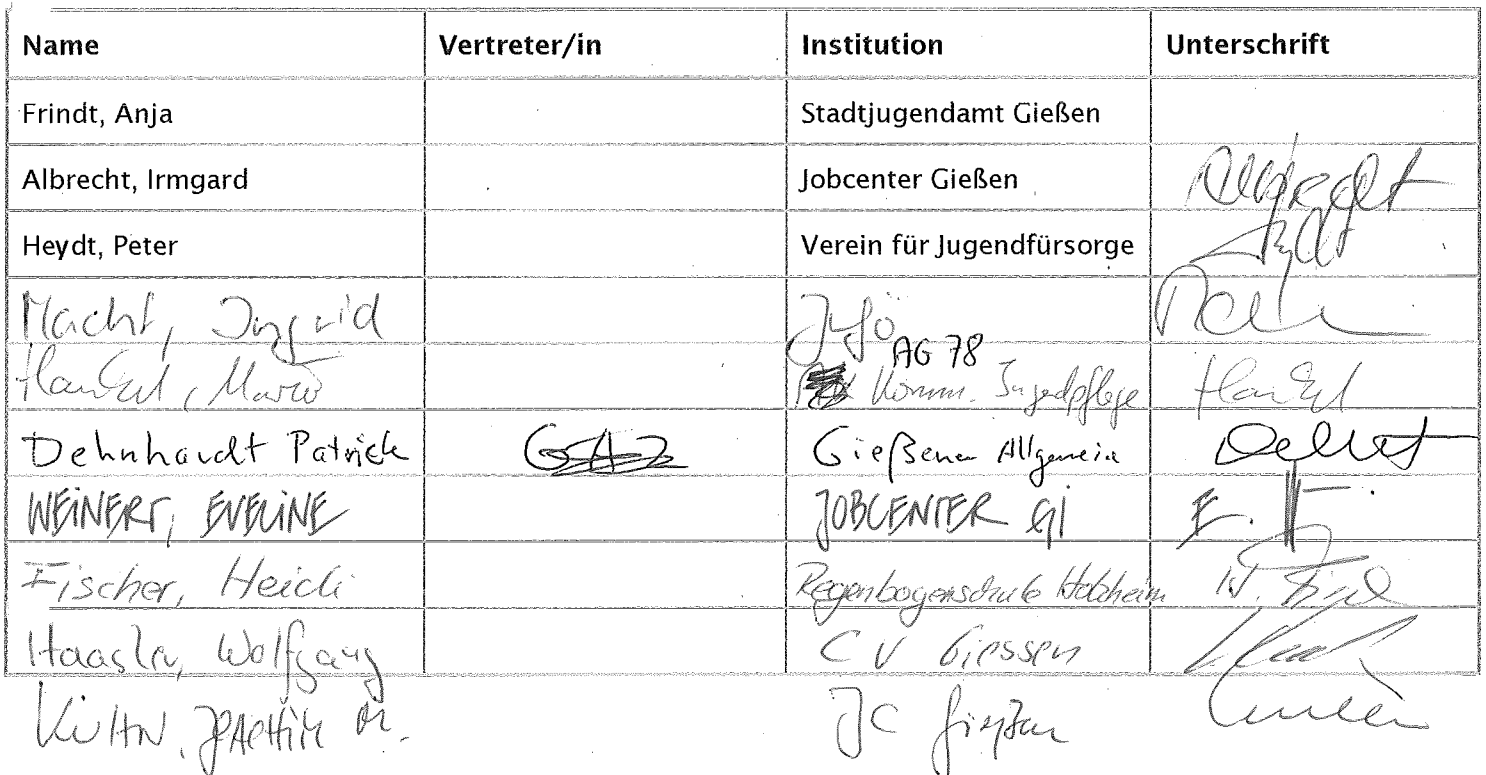 Name Vertreter/in Institution Unterschrift
Frindt, Anja Stadtjugendamt Gießen
Albrecht, Irmgard Jobcenter Gießen Albrecht
Heydt, Peter Verein für Jugendfürsorge
Macht, Ingrid
AG 78
Mario Komm. Jugendpflege
Dehnhardt Patrick GAZ Gießener Allgemeine
WEINERT, EVELINE JOBCENTER GI E.
Fischer, Heidi Regenbogenschule Holzheim
Haasler, Wolfgang CV Giessen
KÜHN, JOACHIM M. JC Gießen